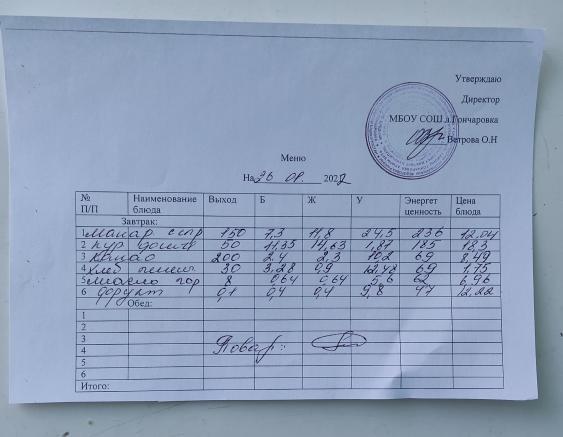 Утверждаю
Директор
МБОУ СОШ д.Гончаровка
Ветрова О.Н
Меню
На 26 09. 2022
№ П/П Наименование блюда Выход Б Ж У Энергет ценность Цена блюда
Завтрак:
1 Макар с сыр 150 7,3 11,8 24,5 236 12,04
2 Кур 50 11,35 14,63 1,87 185 18,3
3 Какао 200 2,4 2,3 10,2 69 8,49
4 Хлеб пшен 30 3,28 0,9 69 1,75
5 масло гор 8 0,64 0,64 5,6 62 6,96
6 фрукт 0,1 0,4 0,4 9,8 47 12,22
Обед:
1
2
3
4
5
6
Повар:
Итого: